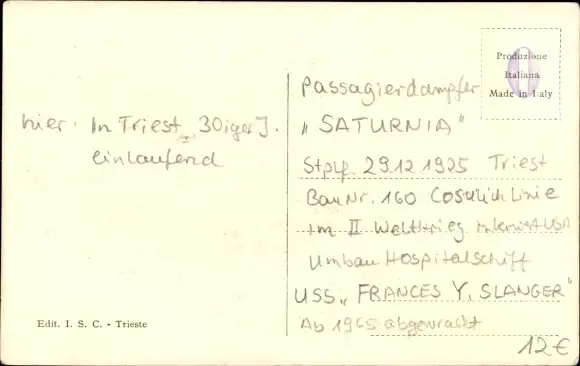 Produzione
Italiana
Made in Italy
Passagierdampfer
„SATURNIA"
Stplf 29.12 1925 Triest
BauNr. 160 Cosulich Linie
Im II Weltkrieg interniert USA
Umbau Hospitalschiff
USS „FRANCES Y. SLANGER"
Ab 1965 abgewrackt
12€
hier: In Triest 30iger J.
einlaufend
Edit. I. S. C. - Trieste